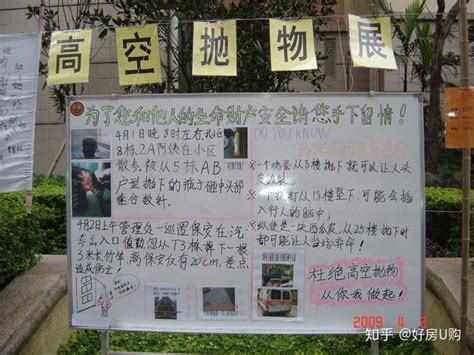 高空抛物展
为了您和他人的生命财产安全请您手下留情！
4月1日晚8时左右我区
8栋2A阿姨在小区
散步被从5栋AB
户型抛下的瓶子砸中头部
缝合数针.
4月2日上午管理处一巡逻保安在汽
车出入口值勤忽从T3栋掉下一根
3米长竹竿离保安仅有20CM,差点
造成伤亡!
DO YOU KNOW
一个鸡蛋从8楼抛下就可以让人头
从18楼坠下,可能会插
入行人的脑中;
一块西瓜皮,从25楼抛下时
都可能让人当场丧命!
杜绝高空抛物
从你我做起!
2009 4 2
知乎 @好房U购